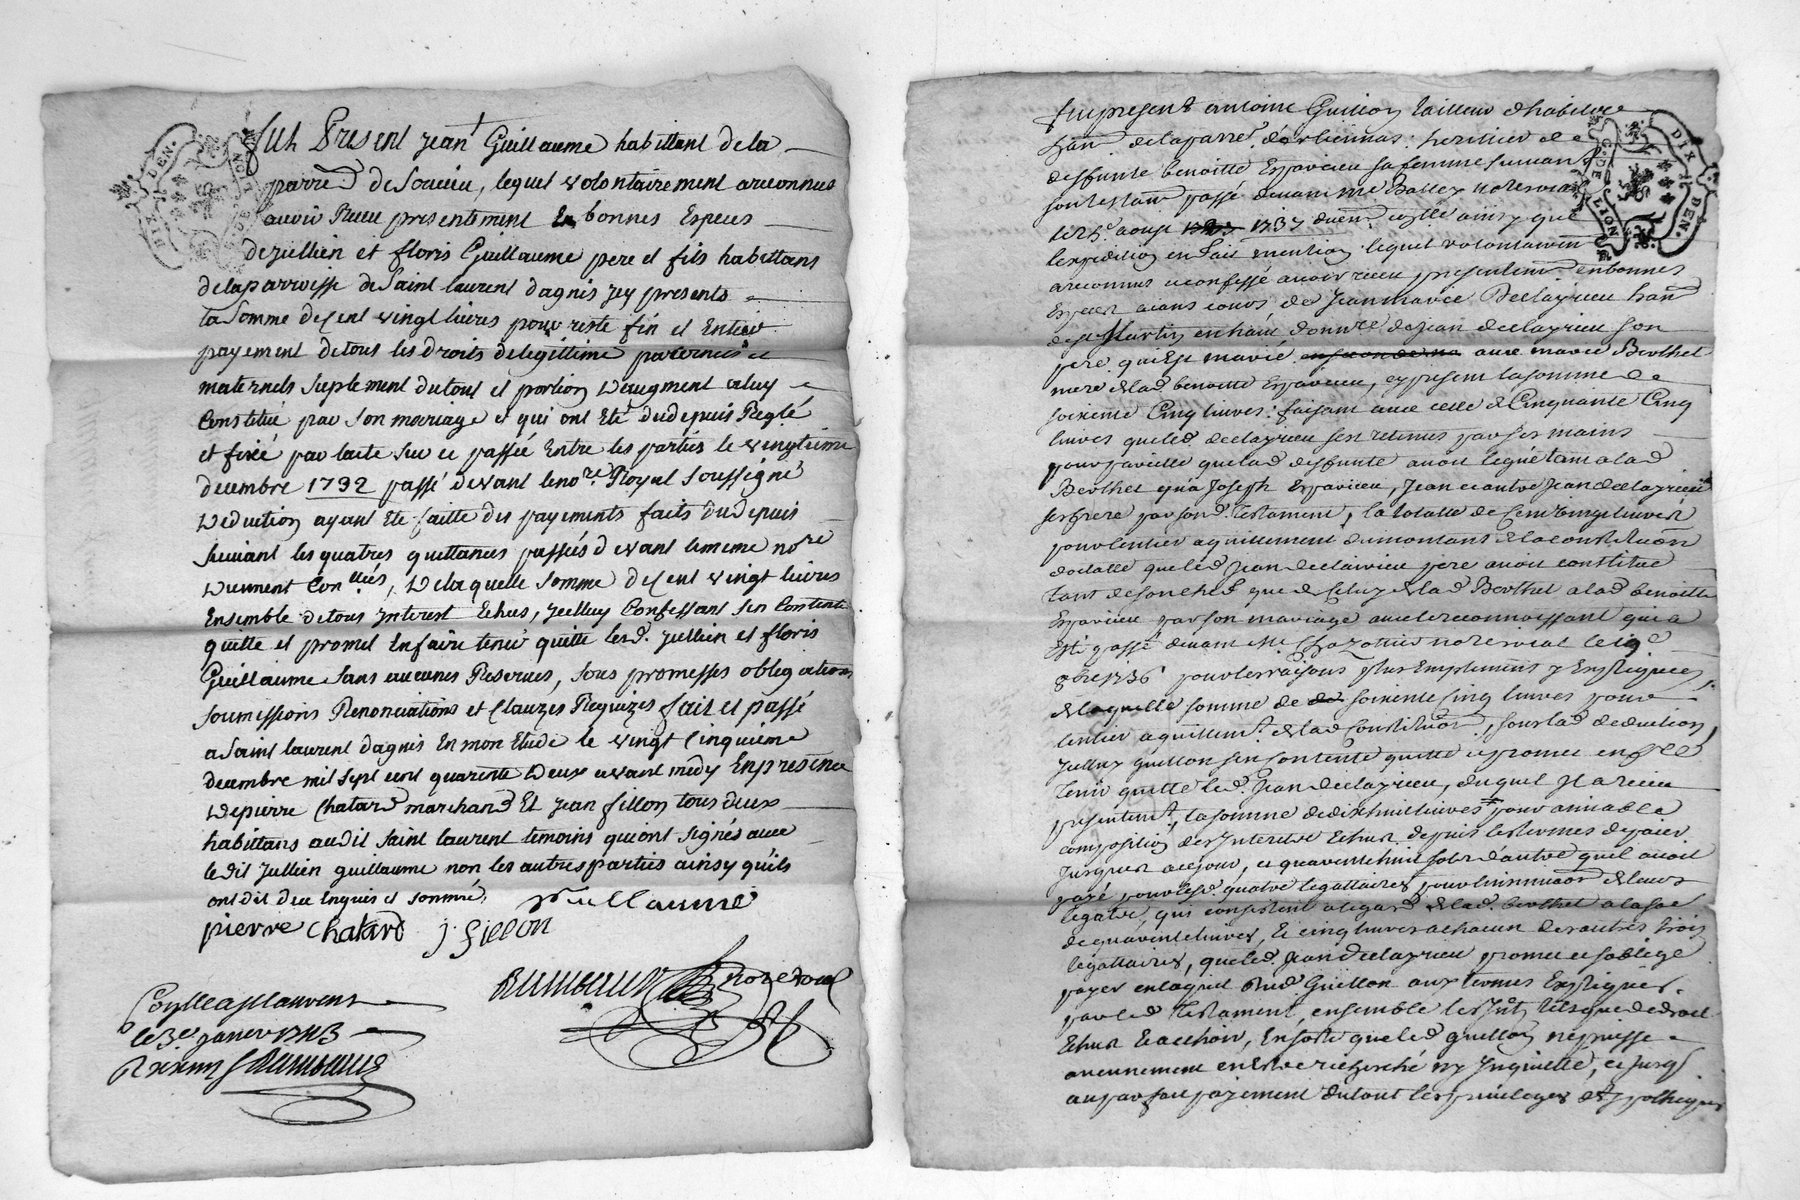 Fut Present jean Guillaume habittant de la
parre. de Soucieu, lequel volontairement a reconnu
avoir Receu presentement En bonnes Especes
de jullien et floris Guillaume pere et fils habittans
de la parroisse de Saint laurent dagnis icy presents
la Somme de Cent vingt livres pour reste fin et Entier
payement de tous les droits de legittime paternels et
maternels suplement du tout et portion d'augment a luy
Constitué par Son mariage et qui ont Eté du depuis Reglé
et fixé par lacte sur ce passée Entre les parties le vingtieme
decembre 1732 passé devant le nore. Royal Soussigné
deduction ayant été faitte des payements faits du depuis
Suivant les quatres quittances passées devant le meme nore
duement Conllées, de laquelle somme de Cent vingt livres
Ensemble de tous Interest Echus, icelluy Confessant sen Contente
quitte et promet En faire tenir quitte lesd. jullien et floris
Guillaume Sans aucunes Reserves, sous promesses obligations
soumissions Renonciations et Clauzes Requizes fait et passé
a Saint laurent dagnis En mon Etude le vingt Cinquieme
decembre mil sept cent quarente deux avant midy En presence
de pierre Chatard marchand Et jean fillon tous deux
habittans audit Saint laurent temoins qui ont signés avec
ledit jullien guillaume non les autres parties ainsy quils
ont dit de ce Enquis et sommés
Guillaume
pierre Chatard j. fillon
no.re royal
le 3e janvr 1743
DIX DEN.
G. DE LION
fut present antoine Guillon tailleur d'habits
han. de la parre. heritier de
deffunte benoitte sa femme suivant
son testam. passé devant me notre royal
aoust 1737 ainsy que
lexpedition en fait mention lequel volontairem.
a reconnu et confessé avoir receu presentem. en bonnes
Especes aiant cours de Jean marie han.
de st Martin en haut de jean son
pere qui Est marié avec marie Berthet
mere de lad. benoitte icy present la somme de
soixente Cinq livres faisant avec celle de Cinquante Cinq
livres que led. sen retenus par ses mains
pour que lad. deffunte avoit legué tant a lad.
Berthet qua Joseph Jean et autre Jean
ses frere par sond. testament, la totalle de Cent vingt livres
pour lentier aquittement du montant de la constitution
dotalle que led. Jean pere avoit constitué
tant de son chef que de Celuy de lad. Berthet a lad. benoitte
par son mariage avec le reconnoissant qui a
Esté passé devant Me notre royal le 19e
8bre 1736 pour les raisons plus amplement y Expliquées
de laquelle somme de soixente Cinq livres pour
lentier aquittemt. de lad. constitution, sous lad. deduction
Guillon sen contente quitte et promet en fre
tenir quitte led. Jean duquel Il a receu
presentemt. la somme de dix huit livres pour amiable
composition des Interets Echus depuis les termes de paier
Jusques a ce jour, et quarente huit sols d'autre quil avoit
payé pour lesd. quatre legattaires de leurs
legats, qui consistent a legard de lad. berthet a la somme
de quarente livres, Et cinq livres a chacun des autres trois
legattaires, que led. Jean promet et soblige
payer en laquit dud. Guillon aux termes Expliqués
par led. testament, ensemble les
Echus Et a Echoir, En sorte que led. guillon ne puisse
aucunement en Etre recherché ny Inquietté, et jusqs
au parfait payement du tout les privileges et hypotheques
DIX DEN.
G. DE LION